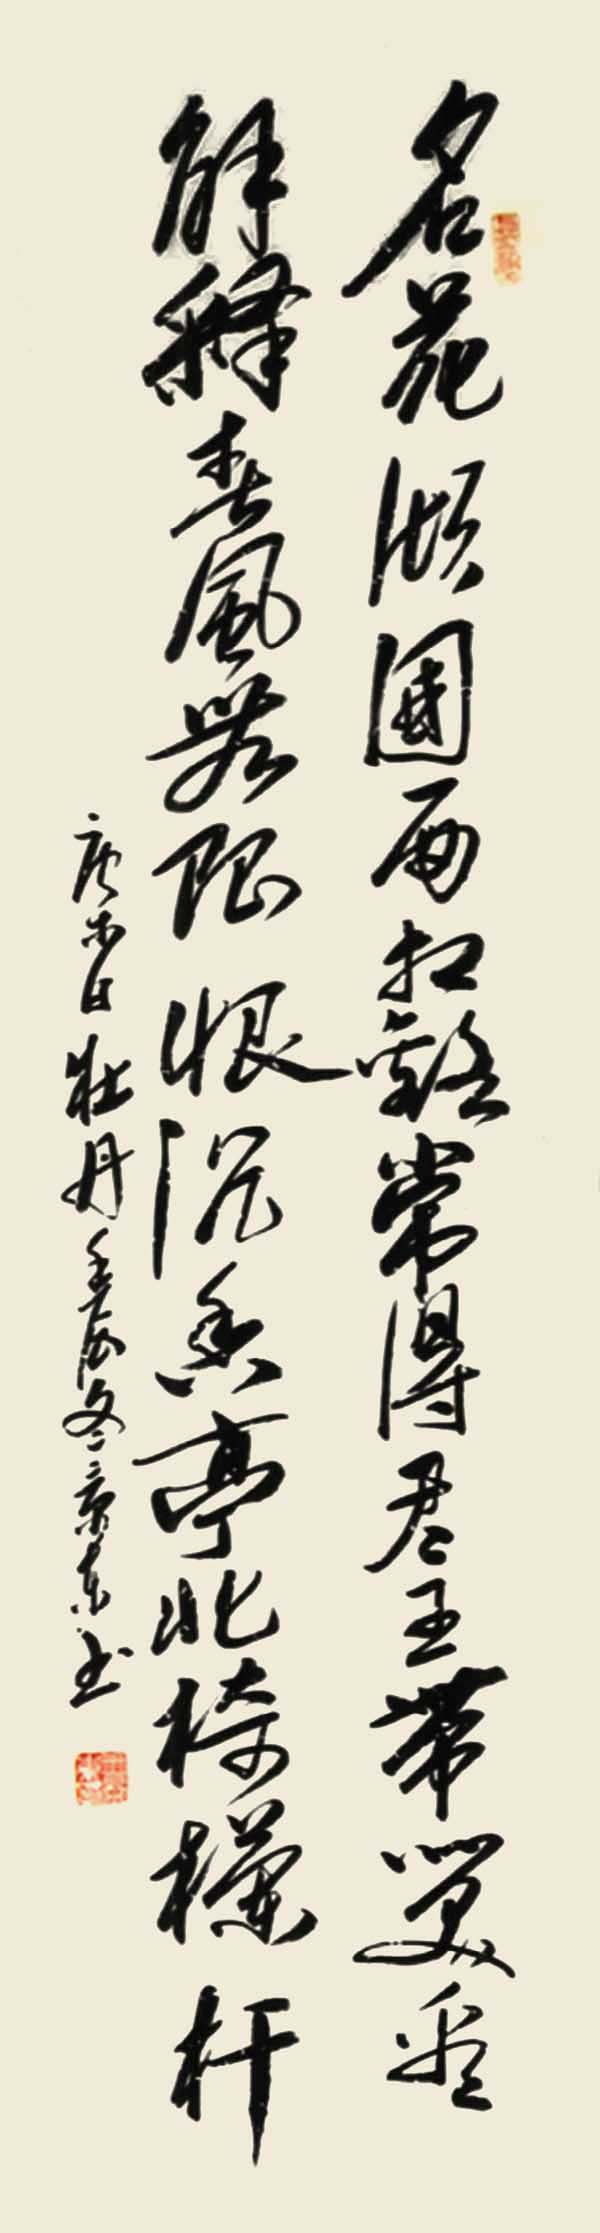 名花傾國两相歡常得君王帶笑看
解釋春風無限恨沉香亭北椅欄杆
唐李白牡丹冬京东书